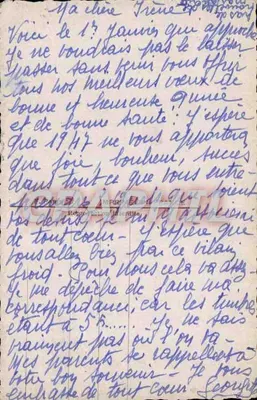 Ma chère Irène
Voici le 1er Janvier qui approche
je ne voudrais pas le laisser
passer sans venir vous offrir
tous nos meilleurs vœux de
bonne et heureuse année
et de bonne santé. J'espère
que 1947 ne vous apportera
que joie, bonheur, succès
dans tout ce que vous entre-
soient
de tout cœur. J'espère que
vous allez bien par ce vilain
froid. Pour nous cela va assez
Je me dépêche de faire ma
correspondance, car les timbres
étant à 5f..... Je ne sais
vraiment pas où l'on va
Mes parents se rappellent à
votre bon souvenir. Je vous
embrasse de tout cœur Georgette